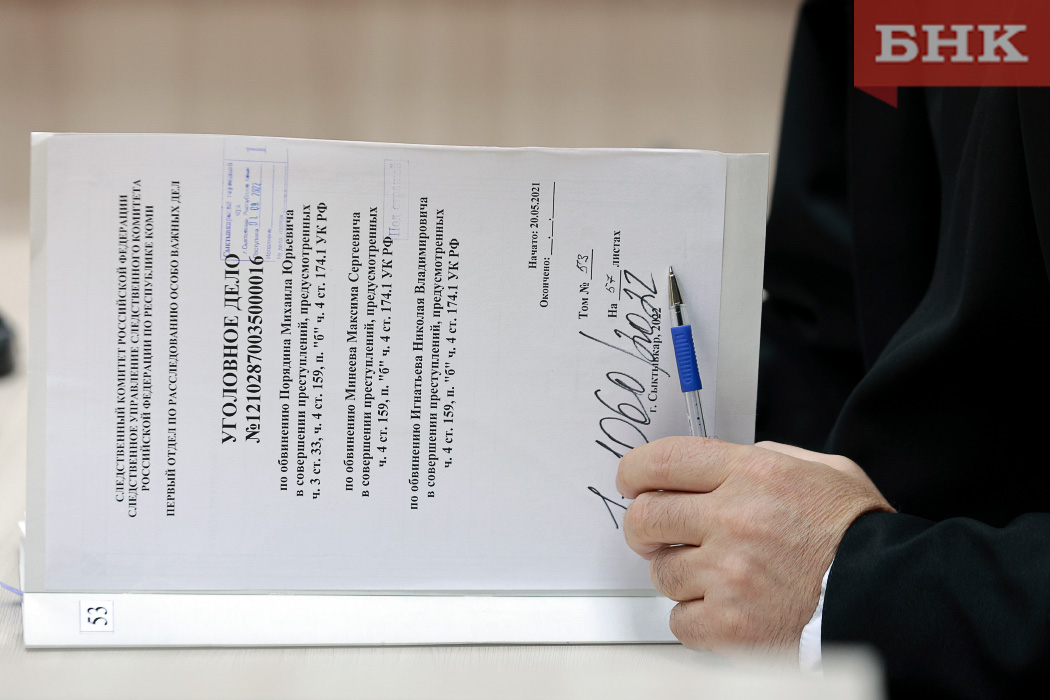 БНК
СЛЕДСТВЕННЫЙ КОМИТЕТ РОССИЙСКОЙ ФЕДЕРАЦИИ
СЛЕДСТВЕННОЕ УПРАВЛЕНИЕ СЛЕДСТВЕННОГО КОМИТЕТА
РОССИЙСКОЙ ФЕДЕРАЦИИ ПО РЕСПУБЛИКЕ КОМИ
ПЕРВЫЙ ОТДЕЛ ПО РАССЛЕДОВАНИЮ ОСОБО ВАЖНЫХ ДЕЛ
УГОЛОВНОЕ ДЕЛО
№12102870035000016
по обвинению Порядина Михаила Юрьевича
в совершении преступлений, предусмотренных
ч. 3 ст. 33, ч. 4 ст. 159, п. "б" ч. 4 ст. 174.1 УК РФ
по обвинению Минеева Максима Сергеевича
в совершении преступлений, предусмотренных
ч. 4 ст. 159, п. "б" ч. 4 ст. 174.1 УК РФ
по обвинению Игнатьева Николая Владимировича
в совершении преступлений, предусмотренных
ч. 4 ст. 159, п. "б" ч. 4 ст. 174.1 УК РФ
Начато: 20.05.2021
Окончено: __.__.____
Том № 53
На 57 листах
г. Сыктывкар, 2022
53